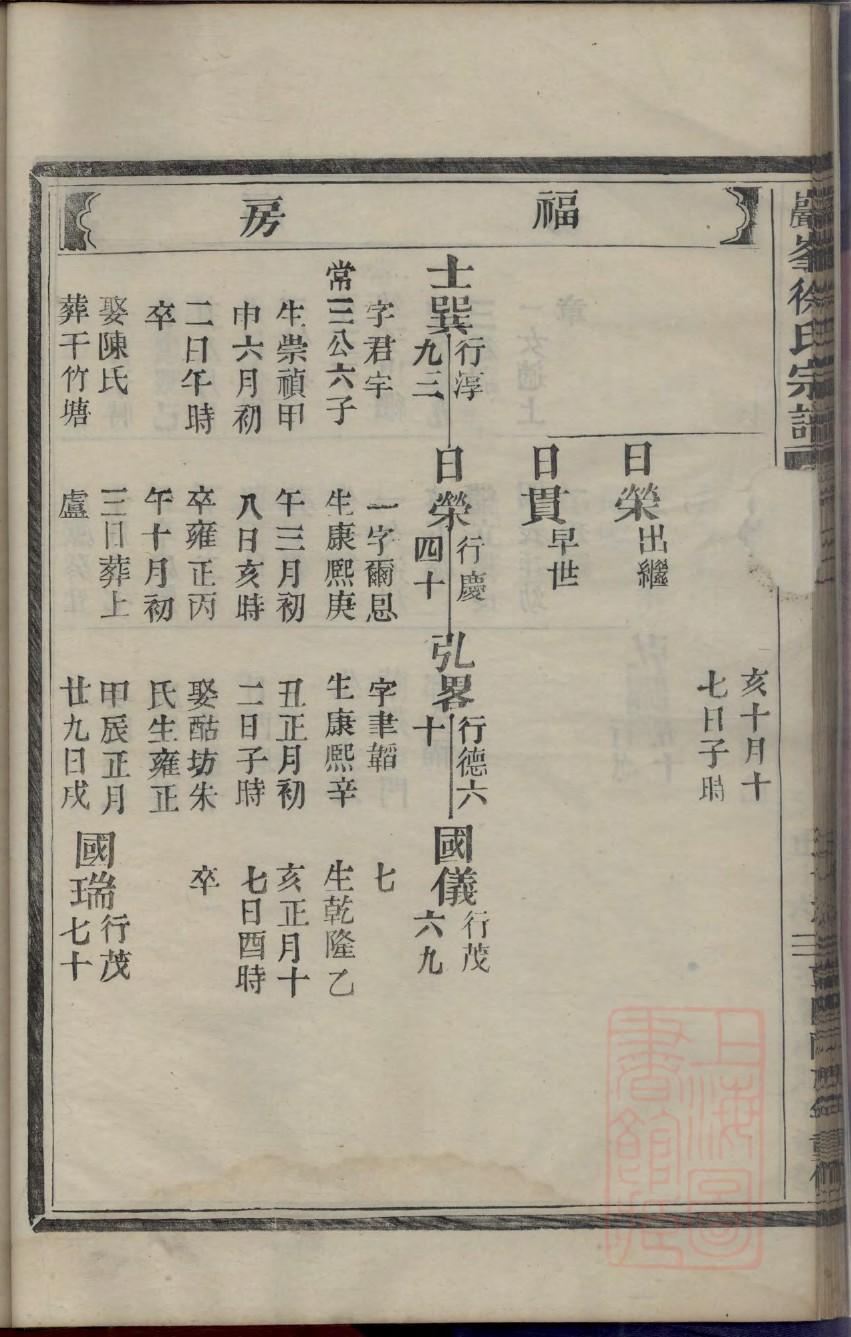 巖峯徐氏宗譜
福房
亥十月十
七日子時
日榮出繼
日貫早世
士巽行淳
九三
字君宇
常三公六子
生崇禎甲
申六月初
二日午時
卒
娶陳氏
葬干竹塘
日榮行慶
四十
一字爾恩
生康熙庚
午三月初
八日亥時
卒雍正丙
午十月初
三日葬上
盧
弘畧行德六
十
字聿韜
生康熙辛
丑正月初
二日子時
娶酤坊朱
氏生雍正
甲辰正月
廿九日戌
國儀行茂
六九
七
生乾隆乙
亥正月十
七日酉時
卒
國瑞行茂
七十
上海圖
書館藏